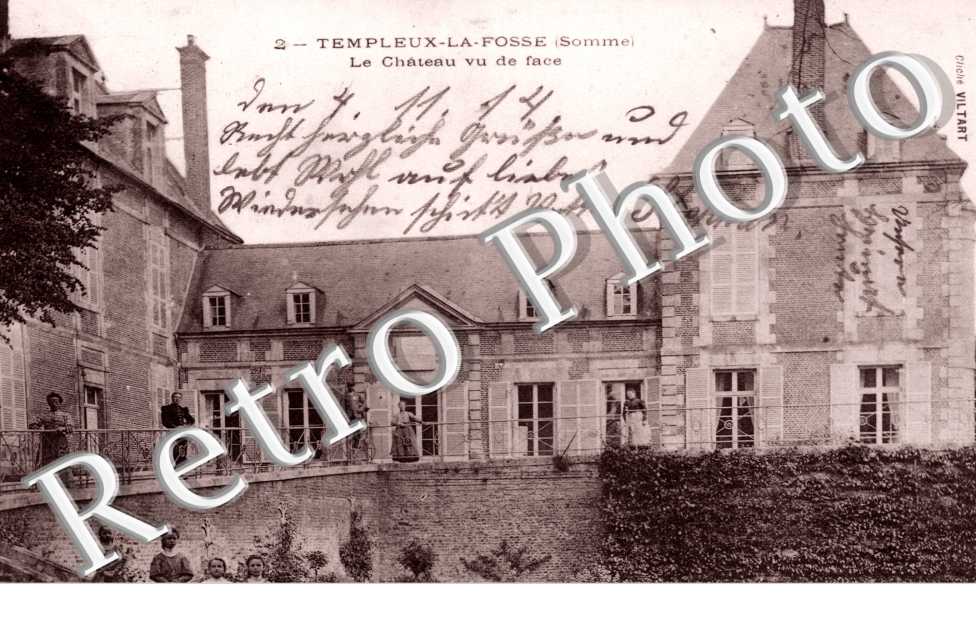 2 — TEMPLEUX-LA-FOSSE (Somme)
Le Château vu de face
Cliché VILTART
den 4. 11. 14
Recht herzliche Grüße und
lebt Wohl auf liebes
Wiedersehen schickt
Retro Photo Photo